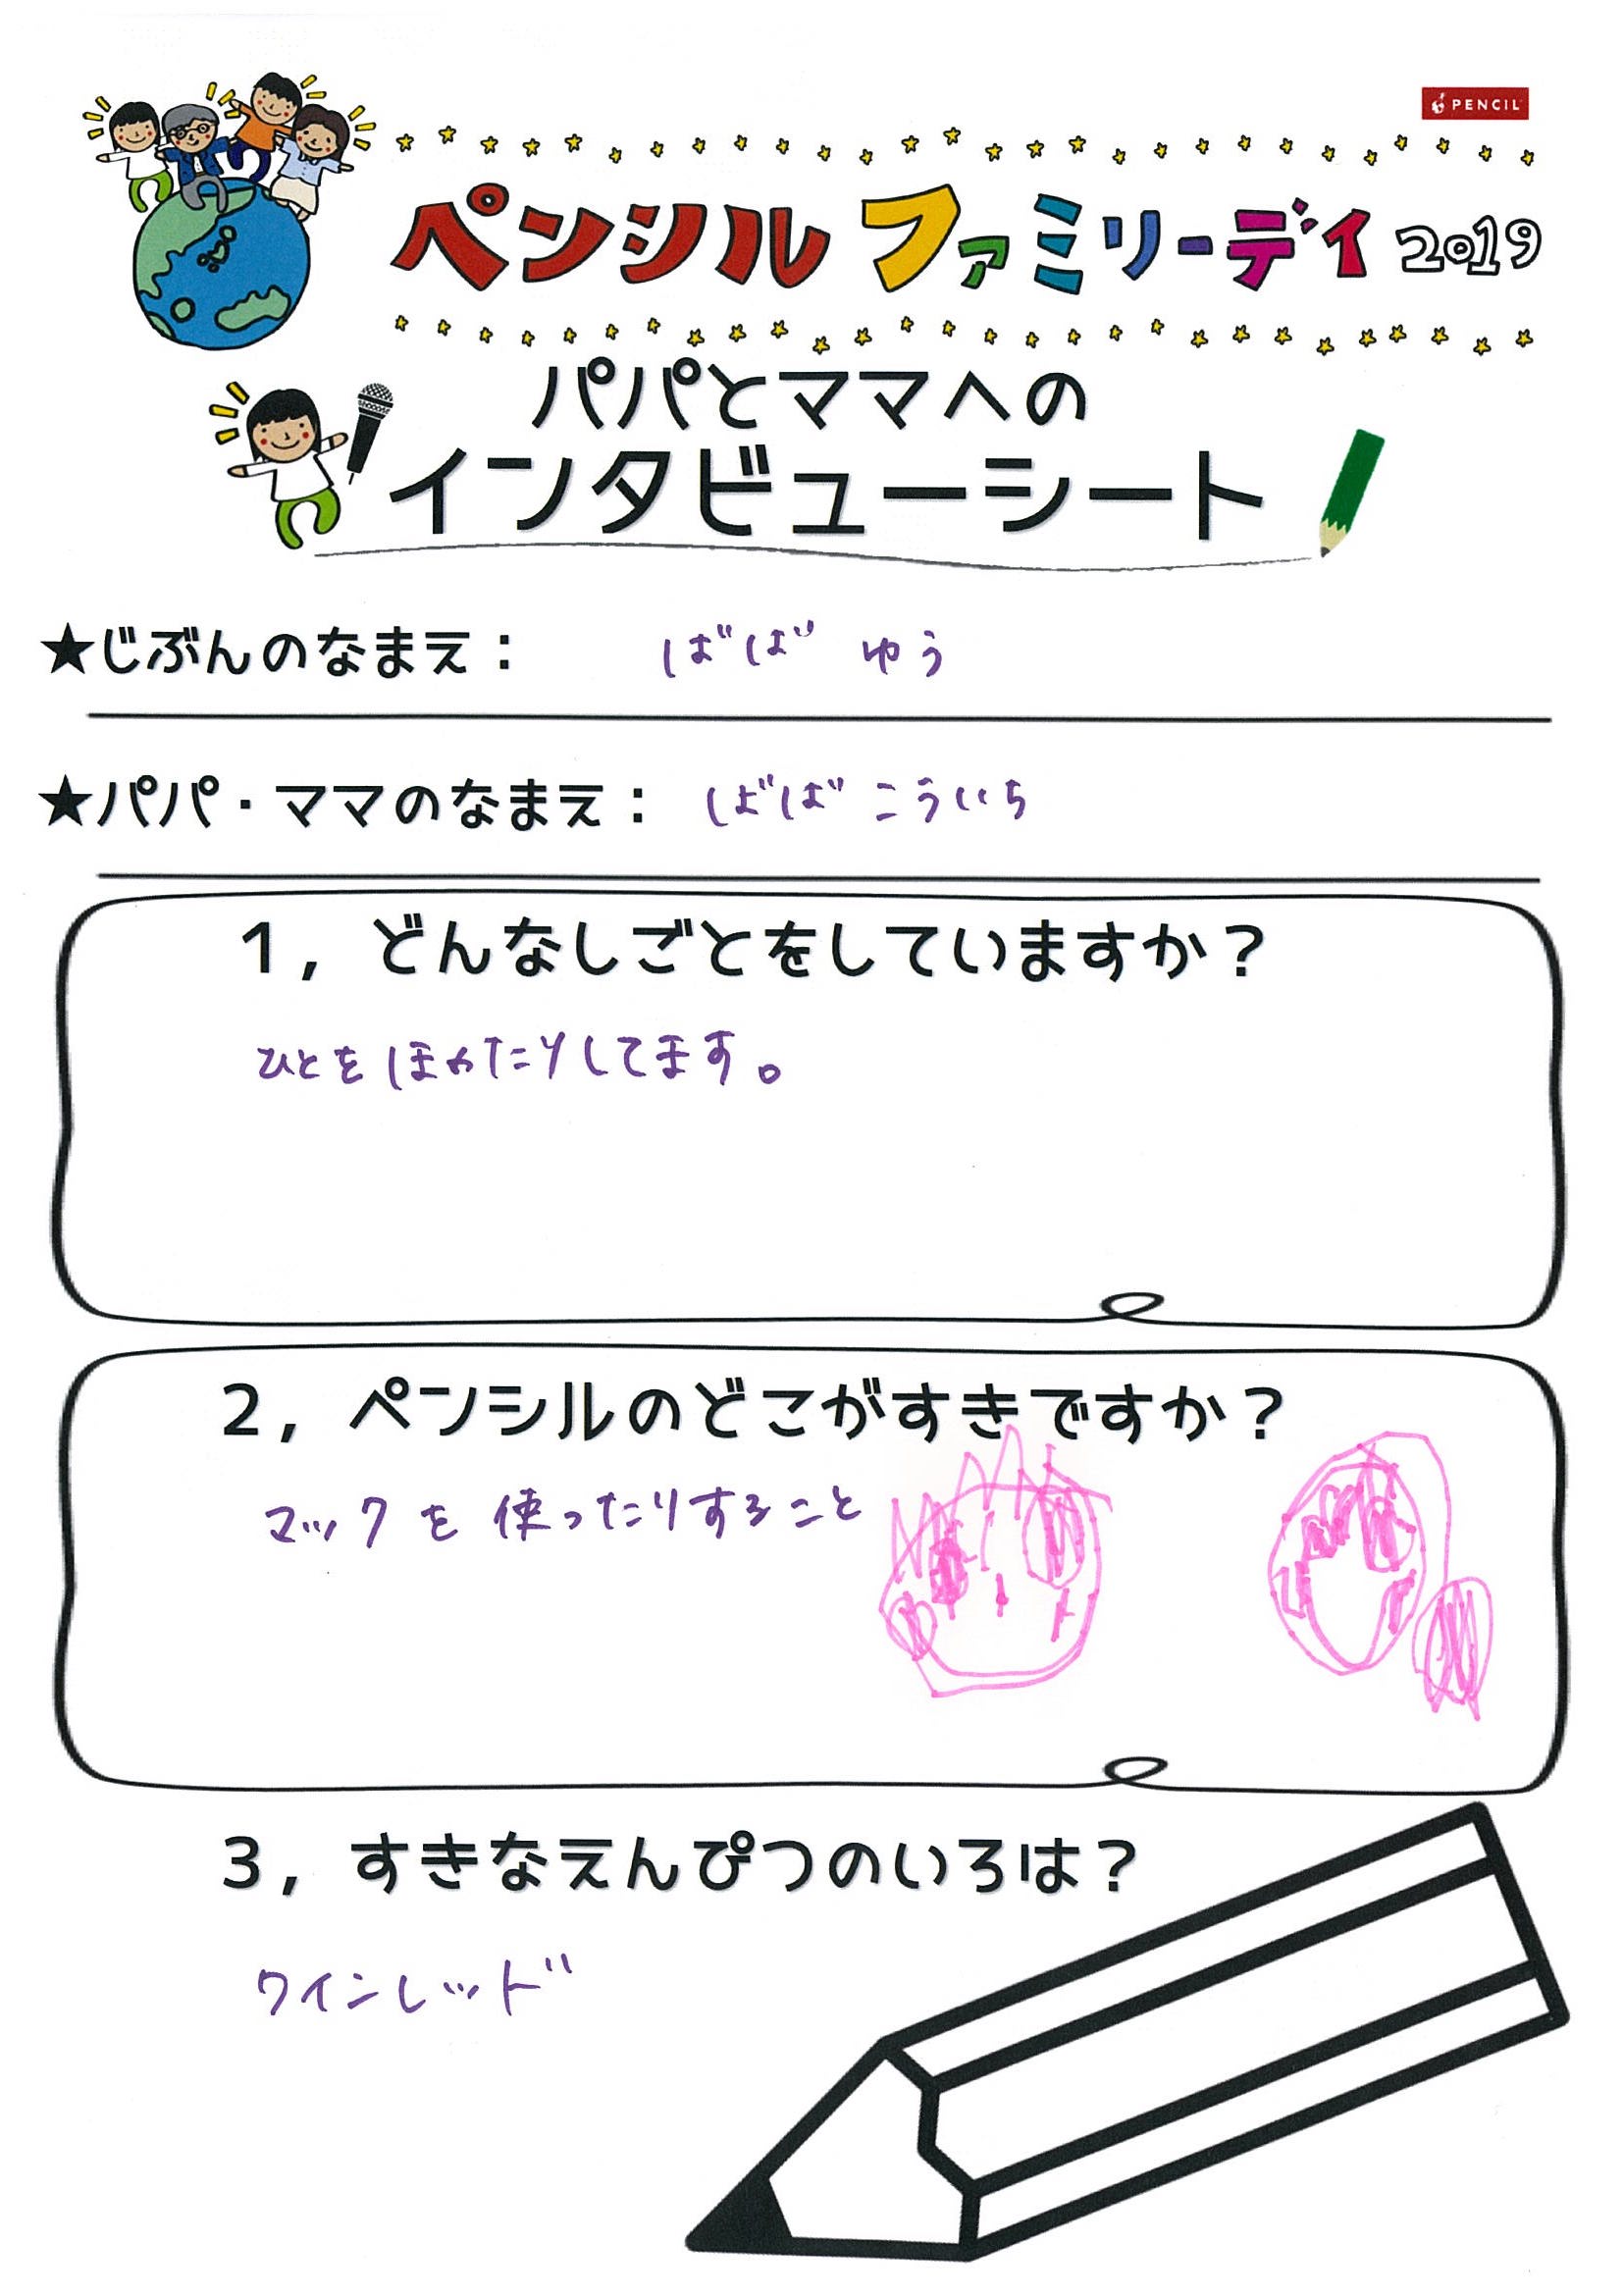 PENCIL
ペンシル ファミリーデイ 2019
パパとママへの
インタビューシート
★じぶんのなまえ： ばば ゆう
★パパ・ママのなまえ： ばば こういち
1，どんなしごとをしていますか？
ひとを ほめたりしてます。
2，ペンシルのどこがすきですか？
マックを 使ったりすること
3，すきなえんぴつのいろは？
ワインレッド